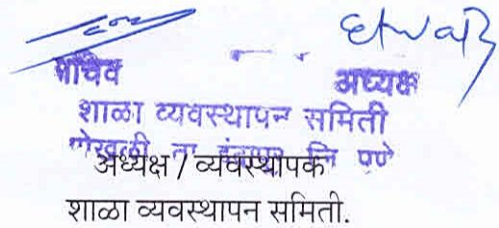 सचिव अध्यक्ष
शाळा व्यवस्थापन समिती
ता इंदापूर जि पुणे
अध्यक्ष / व्यवस्थापक
शाळा व्यवस्थापन समिती.